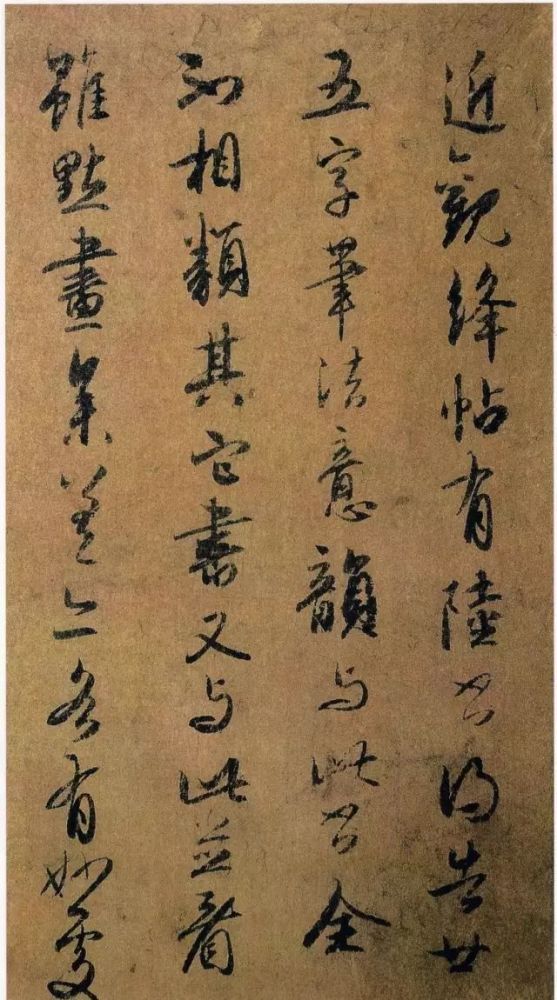 近觀絳帖有陸書得告廿
五字筆法意韻与此書全
不相類其它書又与此並看
雖點畫參差亦各有妙處